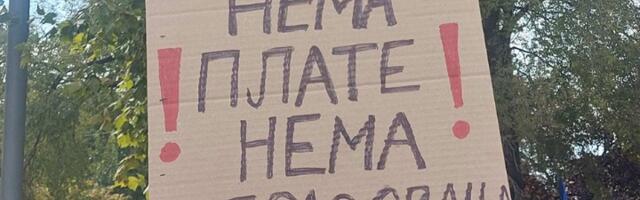 НЕМА
! ПЛАТЕ !
НЕМА